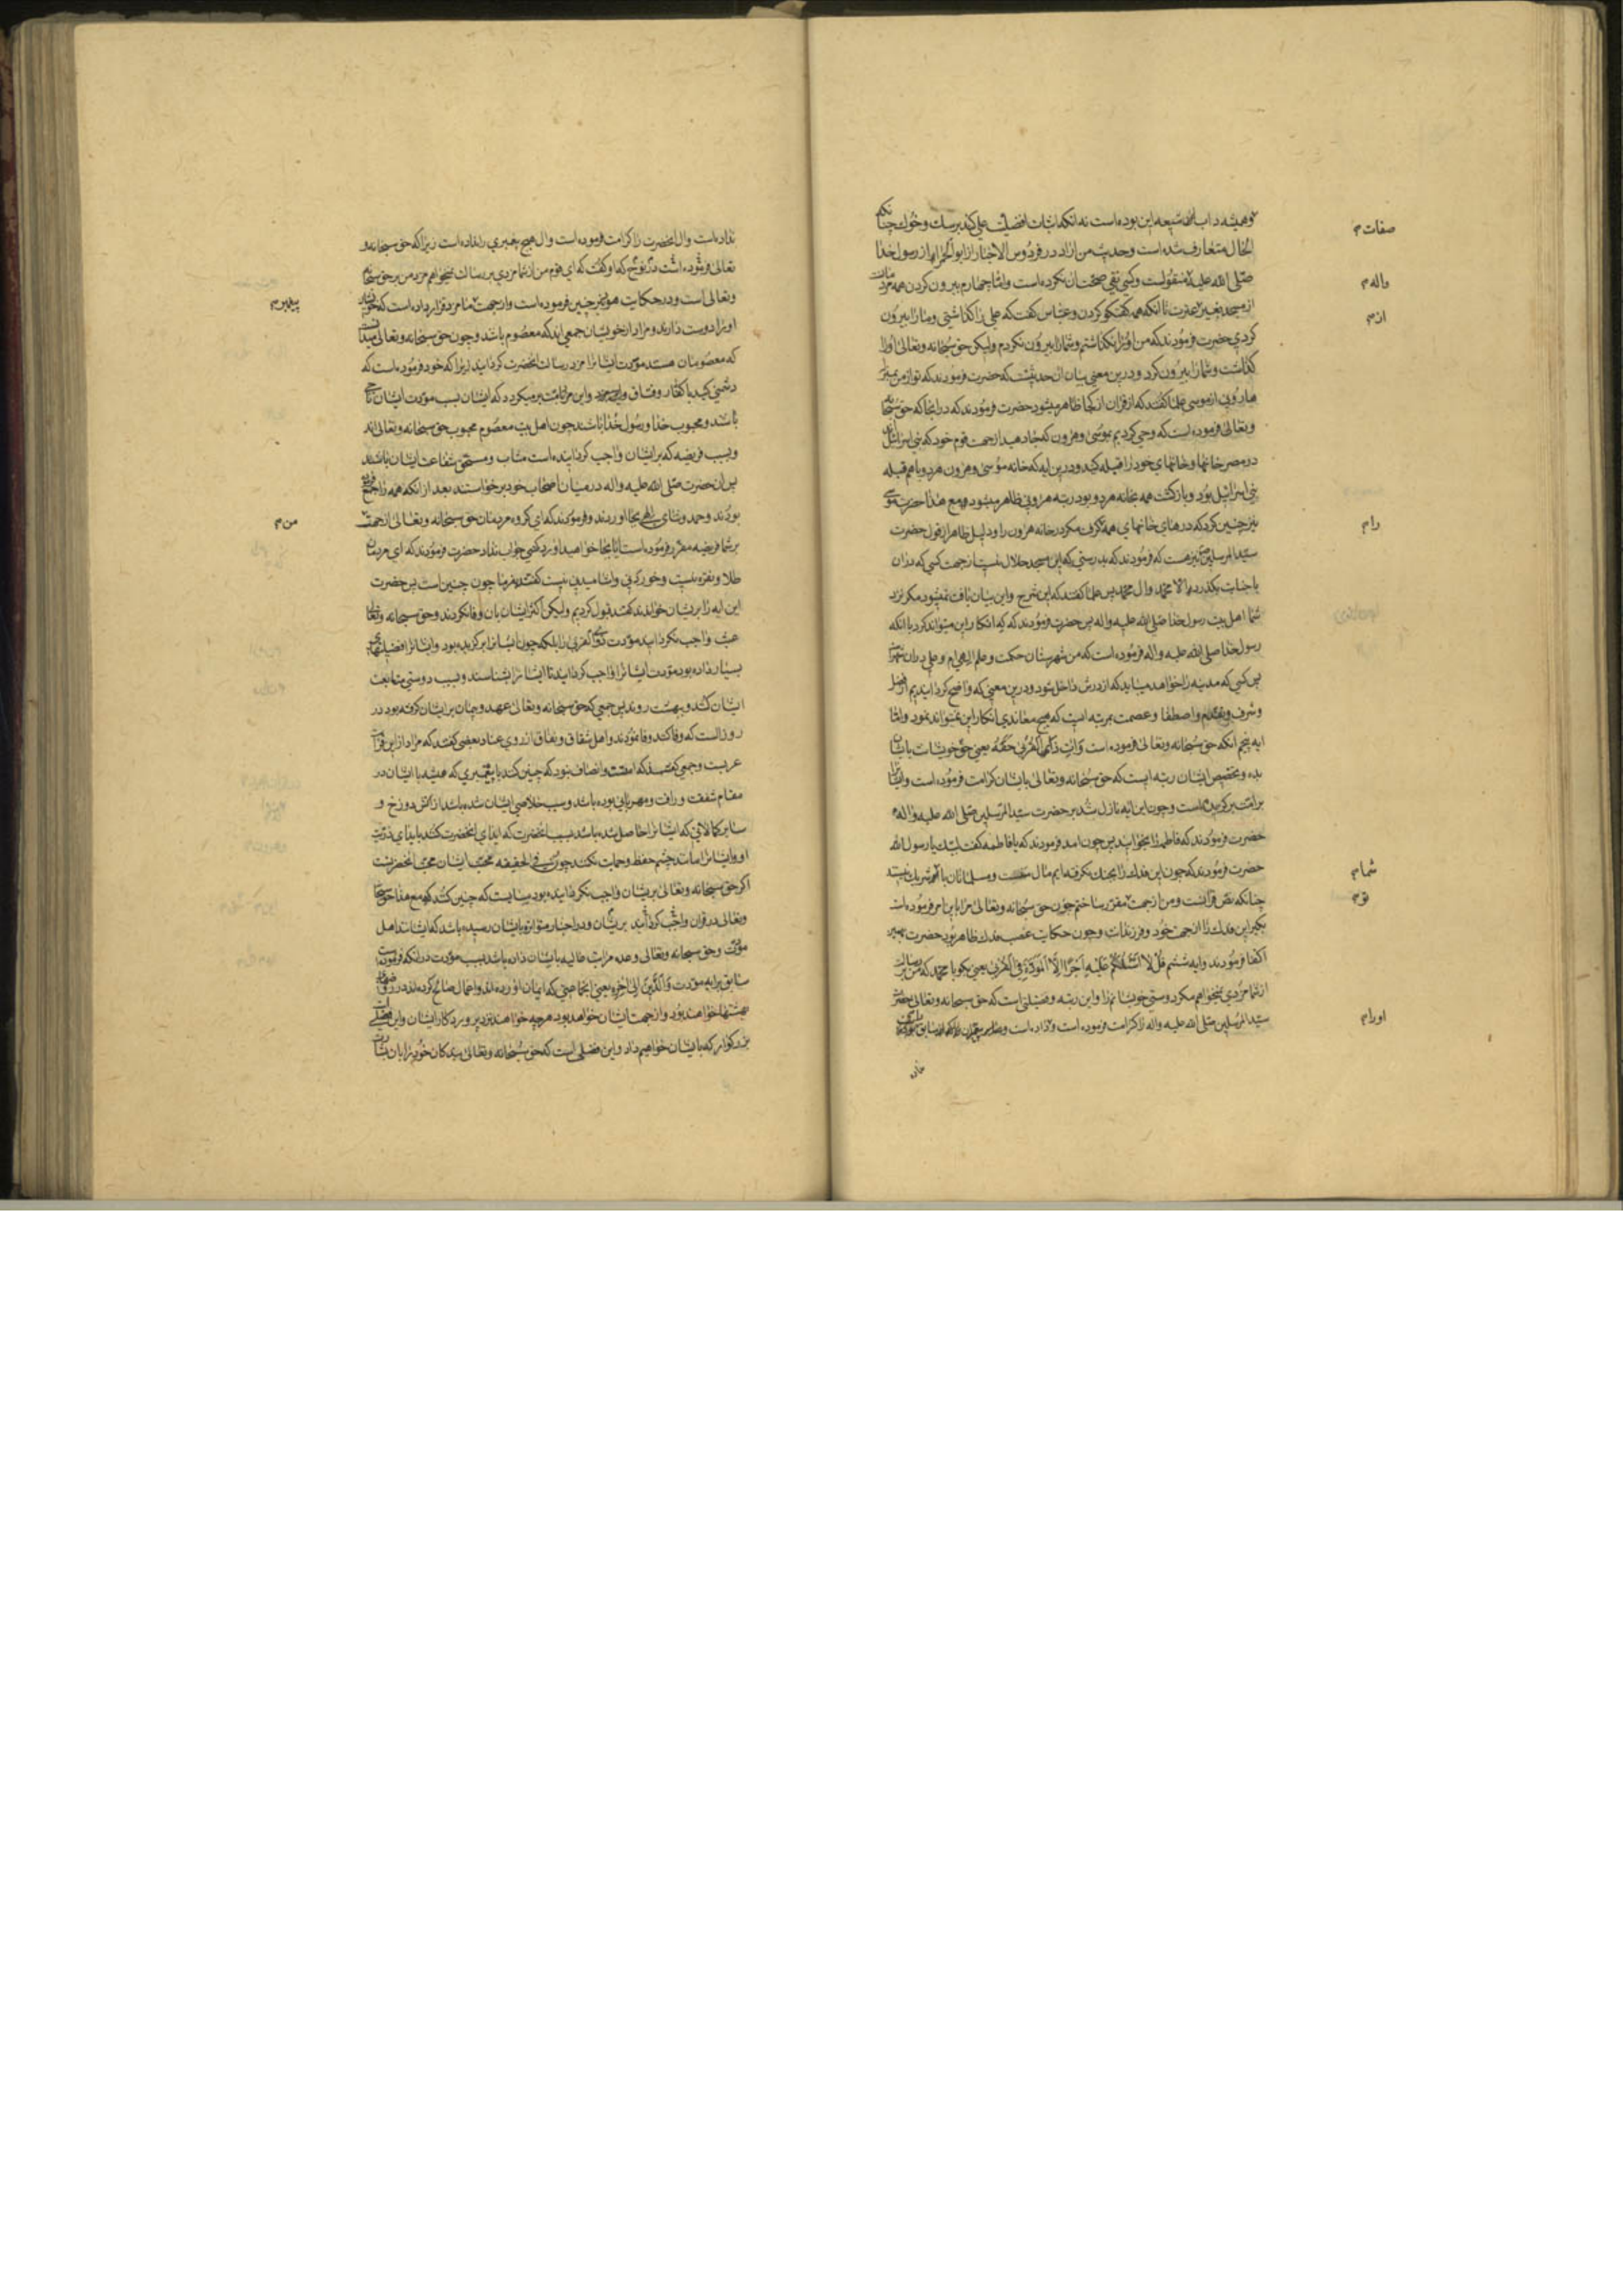 و همیشه داب شیعه این بوده است نه انکه اثبات افضلیت علی کند بر سک و خوک چنانکه
الحال متعارف شده است و حدیث من ازاد در فردوس الاخبار از ابو الحمرا از رسول خدا
صلی الله علیه منقولست و کسی نفی صحت ان نکرده است و اما چهارم بیرون کردن همه مردمان
از مسجد بغیر عترت تا انکه همه کفتکو کردن و عباس کفت که علی را کذاشتی و ما را بیرون
کردی حضرت فرمودند که من او را نکذاشتم و شما را بیرون نکردم ولیکن حق سبحانه و تعالی او را
کذاشت و شما را بیرون کرد و درین معنی بیان ان حدیثست که حضرت فرمودند که تو از من بمنزله
هارونی از موسی علما کفتند که از قران از کجا ظاهر میشود حضرت فرمودند که در انجا که حق سبحانه
و تعالی فرموده است که وحی کردیم بموسی و هرون که خانه دهید از جهت قوم خود که بنی اسرائیل اند
در مصر خانها و خانهای خود را قبله کنید و درین ایه که خانه موسی و هرون هر دو با هم قبله
بنی اسرائیل بود و بازکشت همه بخانه هر دو بود رتبه هارونی ظاهر میشود و مع هذا حضرت موسی
نیز چنین کرد که درهای خانهای همه کرفت مکر در خانه هرون را و دلیل ظاهر از قول حضرت
سید المرسلین نیز هست که فرمودند که بدرستی که این مسجد حلال نیست از جهت کسی که در ان
با جنابت بکذرد الا محمد وال محمد پس علما کفتند که این شرح و این بیان یافت نمیشود مکر نزد
شما اهل بیت رسول خدا صلی الله علیه واله پس حضرت فرمودند که که انکار این میتواند کرد با انکه
رسول خدا صلی الله علیه واله فرموده است که من شهرستان حکمت و علم الهی ام و علی در ان شهرست
پس کسی که مدینه را خواهد میباید که از درش داخل شود و درین معنی که واضح کردانیدیم از فضل
و شرف و تقدم و اصطفا و عصمت مرتبه ایست که هیچ معاندی انکار این نمیتواند نمود و اما
ایه پنجم انکه حق سبحانه و تعالی فرموده است وَاتِ ذَا الْقُرْبی حَقَّهُ یعنی حق خویشانت بایشان
بده و تخصیص ایشان رتبه ایست که حق سبحانه و تعالی بایشان کرامت فرموده است و ایشانرا
بر امت برکزیده است و چون این ایه نازل شد بر حضرت سید المرسلین صلی الله علیه واله
حضرت فرمودند که فاطمه را بخوانید پس چون امد فرمودند که یا فاطمه کفت لبیک یا رسول الله
حضرت فرمودند که چون این فدک را بجنک نکرفته ایم مال منست و مسلمانان با شریک نیستند
چنانکه نص قرانست و من از جهت مقرر ساختم چون حق سبحانه و تعالی مرا باین امر فرموده است
بکیر این فدک را از جهت خود و فرزندانت و چون حکایت غصب فدک ظاهر بود حضرت بهمین
اکتفا فرمودند و ایه ششم قُلْ لا اَسْئَلُکُمْ عَلَیْهِ اَجْرًا اِلَّا الْمَوَدَّةَ فِی الْقُرْبی یعنی بکو یا محمد که من بر رسالت
از شما مزدی نمیخواهم مکر دوستی خویشانم را و این رتبه و فضیلتی است که حق سبحانه و تعالی حضرت
سید المرسلین صلی الله علیه واله را کرامت فرموده است و داده است
نداده
صفات م
واله م
از م
را م
شما م
تو م
او را م
نداده است وال انحضرت را کرامت فرموده است وال هیچ پغمبری را نداده است زیرا که حق سبحانه و
تعالی فرموده است در نوح که او کفت که ای قوم من از شما مزدی بر رسالت نمیخواهم مزد من بر حق سبحانه
و تعالی است و در حکایت هود نیز چنین فرموده است و از جهت ما مزد قرار داده است که خویشان
او را دوست دارند و مراد از خویشان جمعی اند که معصوم باشد و چون حق سبحانه و تعالی میدانست
که معصومان هستند مودت ایشانرا مزد رسالت انحضرت کردانید زیرا که خود فرموده است که
دشمنی کنید با کفار و فساق و این مرتبه میکردد که ایشان بسبب مودت ایشان ناجی
باشند و محبوب خدا و رسول خدا باشند چون اهل بیت معصوم محبوب حق سبحانه و تعالی اند
و بسبب فریضه که بر ایشان واجب کردانیده است مثاب و مستحق شفاعت ایشان باشند
پس ان حضرت صلی الله علیه واله در میان اصحاب خود برخواستند بعد از انکه همه را جمع فرموده
بودند و حمد و ثنای الهی بجا اوردند و فرمودند که ای کروه مردمان حق سبحانه و تعالی از جهت
بر شما فریضه مقرر فرموده است ایا بجا خواهید اورد کسی جواب نداد حضرت فرمودند که ای مردمان
طلا و نقره نیست و خوردنی و اشامیدنی نیست کفتند بفرما چون چنین است پس حضرت
این ایه را بر ایشان خواندند کفتند قبول کردیم ولیکن اکثر ایشان بان وفا نکردند و حق سبحانه و تعالی
عبث واجب نکردانید مودت ذوی القربی را بلکه چون ایشانرا برکزیده بود و ایشانرا افضیلتهای
بسیار داده بود مودت ایشانرا واجب کردانید تا ایشانرا بشناسند و بسبب دوستی متابعت
ایشان کنند و بهشت روند پس جمعی که حق سبحانه و تعالی عهد و پیمان بر ایشان کرفته بود در
روز الست که وفا کنند وفا نمودند و اهل شقاق و نفاق از روی عناد بعضی کفتند که مراد از این قرابت
عربست و جمعی کفتند که امتست و انصاف نبود که چنین کنند با پیغمبری که همیشه با ایشان در
مقام شفقت و رافت و مهربانی بوده باشد و سبب خلاصی ایشان شده باشد از اتش دوزخ و
سایر کمالاتی که ایشانرا حاصل شده باشد بسبب انحضرت که ایذای انحضرت کنند بایذای ذریت
او و ایشانرا مانند چشم حفظ و حمایت نکنند چون فی الحقیقه محب ایشان محب انحضرتست
اکر حق سبحانه و تعالی بر ایشان واجب نکردانیده بود میبایست که چنین کنند که مع هذا حق سبحانه
و تعالی در قران واجب کردانید بر ایشان و در اخبار متواتره بایشان رسیده باشد که ایشانند اهل
مودت و حق سبحانه و تعالی وعده مراتب عالیه بایشان داده باشد بسبب مودت در انکه فرموده است
سابق برایه مودت وَالَّذِینَ الی اخره یعنی انجماعتی که ایمان اورده اند و اعمال صالح کرده اند در روضهای
بهشتها خواهند بود و از جهت ایشان خواهد بود هر چه خواهند نزد پروردکار ایشان و این است فضلی
بزرکوار که بایشان خواهیم داد و این فضلی است که حق سبحانه و تعالی بندکان خود را بان بشارت
پیغمبر م
من م